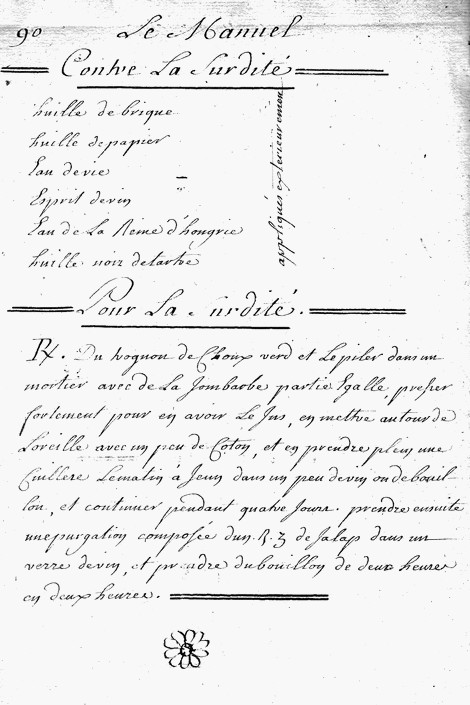 90 Le Manuel
Contre La Surdité
huille de brique
huille de papier
Eau de vie
Esprit de vin
Eau de La Reine d'hongrie
huille noir de tartre
appliqués exterieurement
Pour La Surdité.
Rx. Du trognon de Choux verd et Le piler dans un
mortier avec de La Jombarbe partie Egalle, presser
fortement pour en avoir Le Jus, en mettre autour de
L'oreille avec un peu de Coton, et en prendre plein une
Cuillere Le matin à Jeun dans un peu de vin ou de bouil-
lon, et continuer pendant quatre Jours. prendre ensuite
une purgation composée d'un de Jalap dans un
verre de vin, et prendre du bouillon de deux heures
en deux heures.